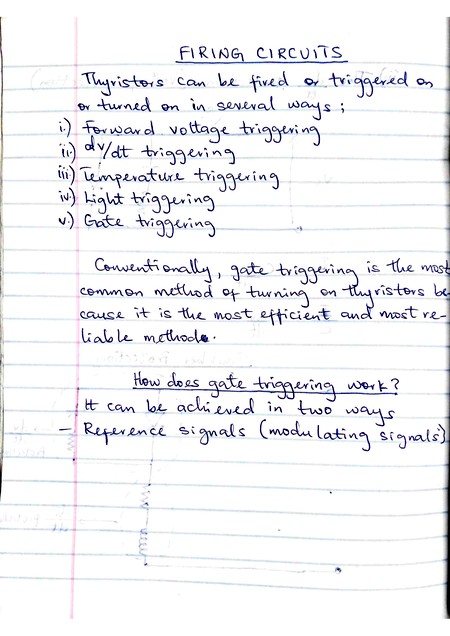 FIRING CIRCUITS
Thyristors can be fired or triggered on
or turned on in several ways;
i.) Forward voltage triggering
ii.) dv/dt triggering
iii.) Temperature triggering
iv.) Light triggering
v.) Gate triggering
Conventionally, gate triggering is the most
common method of turning on thyristors be-
cause it is the most efficient and most re-
liable method.
How does gate triggering work?
It can be achieved in two ways
- Reference signals (modulating signals)